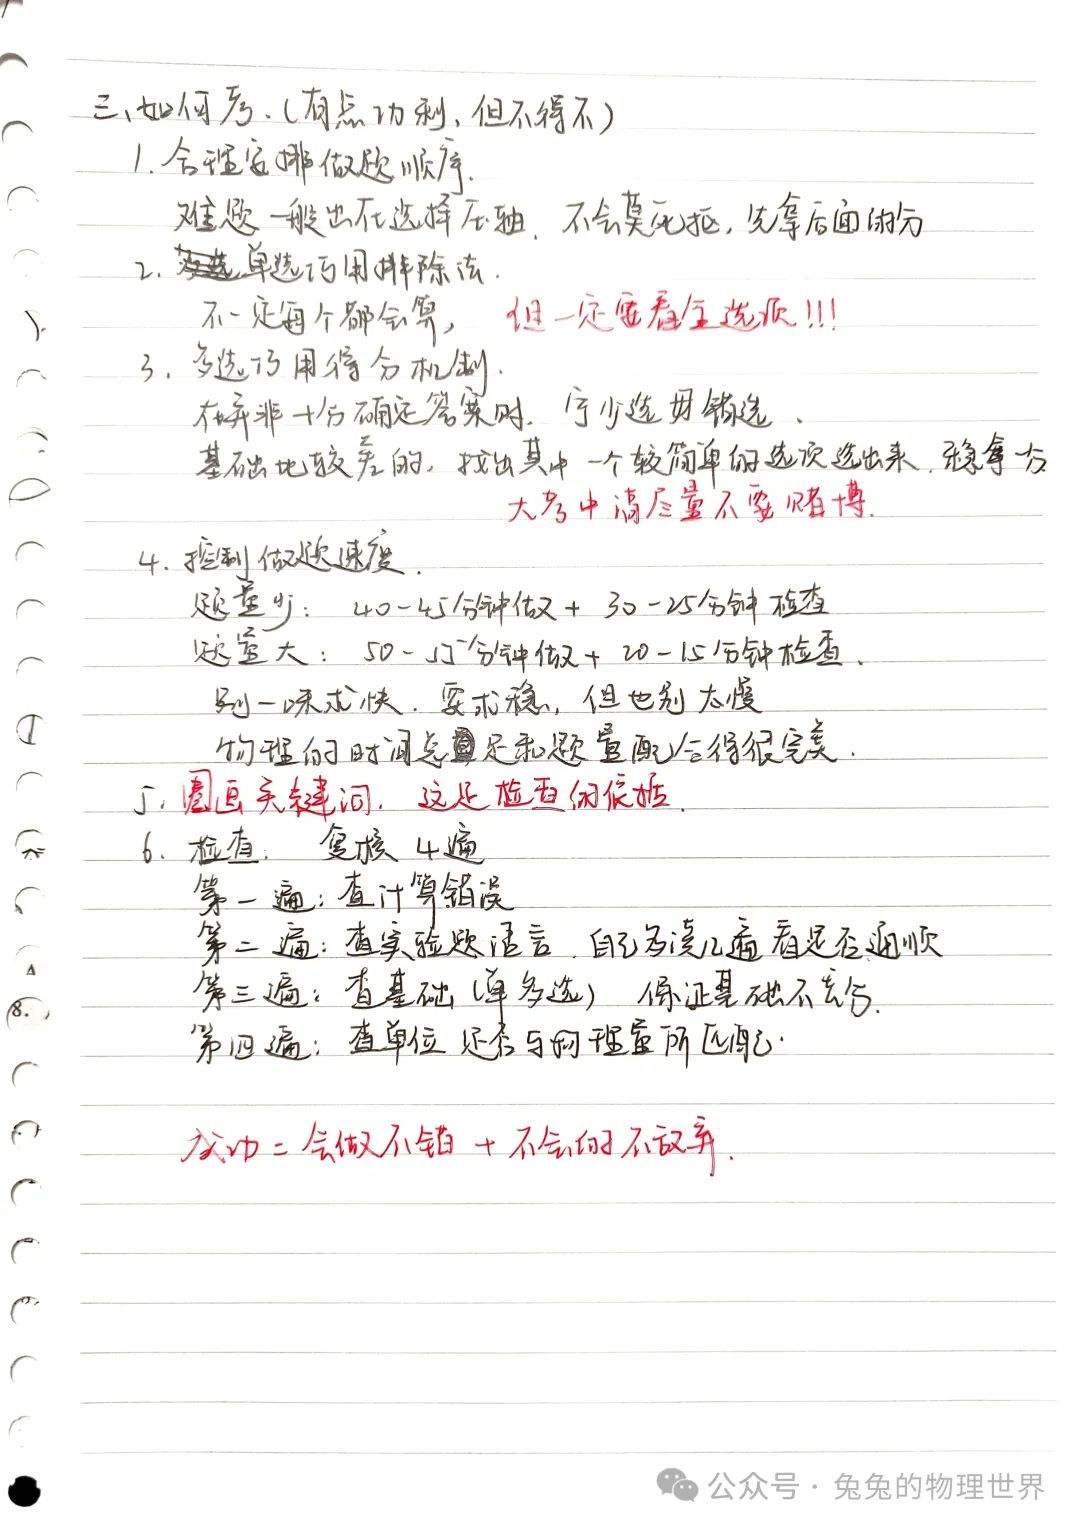 三、如何考.(有点功利、但不得不)
1. 合理安排做题顺序.
难题一般出在选择压轴. 不会莫死抠, 先拿后面的分
2. 单选巧用排除法.
不一定每个都会算, 但一定要看全选项!!!
3. 多选巧用得分机制.
在并非十分确定答案时. 宁少选毋错选.
基础比较差的, 找出其中一个较简单的选项选出来. 稳拿分
大考中请尽量不要赌博.
4. 控制做题速度.
题量少: 40-45分钟做 + 30-25分钟检查
题量大: 50-55分钟做 + 20-15分钟检查.
别一味求快. 要求稳, 但也别太慢
物理的时间总是和题量配合得很完美.
5. 圈画关键词. 这是检查的依据.
6. 检查. 复核4遍
第一遍: 查计算错误
第二遍: 查实验题语言. 自己多读几遍看是否通顺
第三遍: 查基础(单多选) 保证基础不丢分.
第四遍: 查单位是否与物理量所匹配.
成功 = 会做不错 + 不会的不放弃.
8.
公众号·兔兔的物理世界